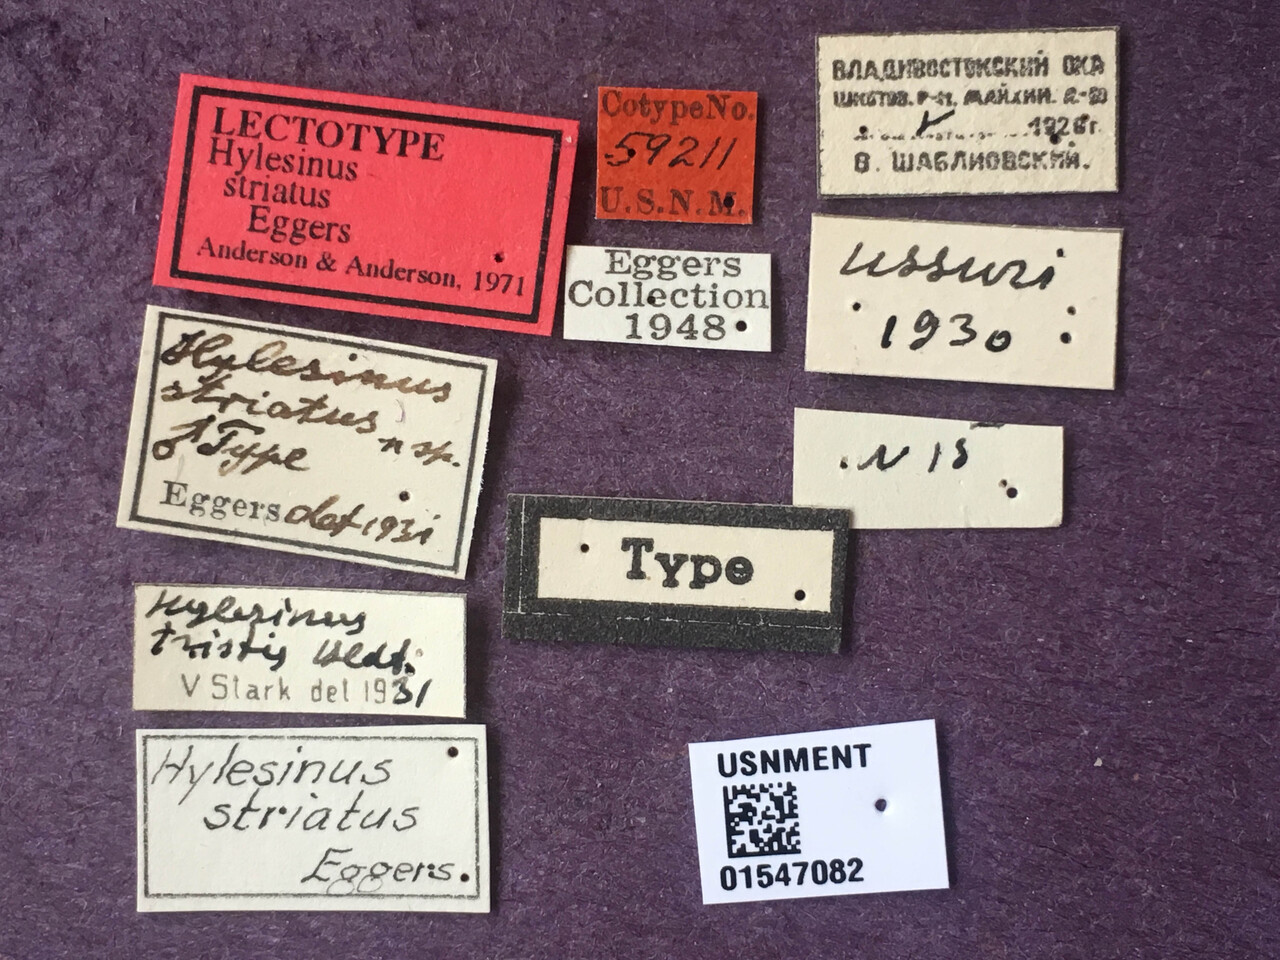 LECTOTYPE
Hylesinus
striatus
Eggers
Anderson & Anderson, 1971
Cotype No.
59211
U.S.N.M.
ВЛАДИВОСТОКСКИЙ ОКР
ШКОТОВ. Р-Н. МАЙХИН. Д-
V 1926г.
В. ШАБЛИОВСКИЙ.
Eggers
Collection
1948
ussuri
1930
Hylesinus
striatus n sp.
♂ Type
Eggers det 1931
N 15
Type
Hylesinus
tristis
V Stark det 1931
Hylesinus
striatus
Eggers.
USNMENT
01547082